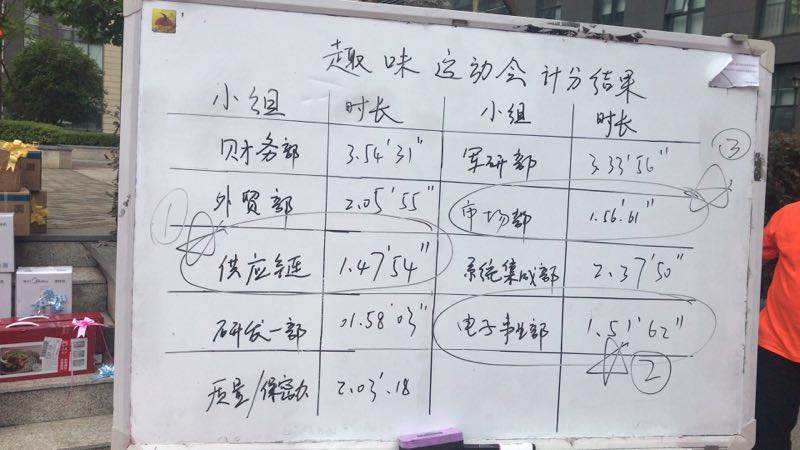 趣味运动会计分结果
小组 时长 小组 时长
财务部 3.54'31" 军研部 3.33'56"
外贸部 2.05'55" 市场部 1.56'61" ③
① 供应链 1.47'54" 系统集成部 2.37'50"
研发一部 01.58'03" 电子事业部 1.51'62" ②
质量/保密办 2.03'.18